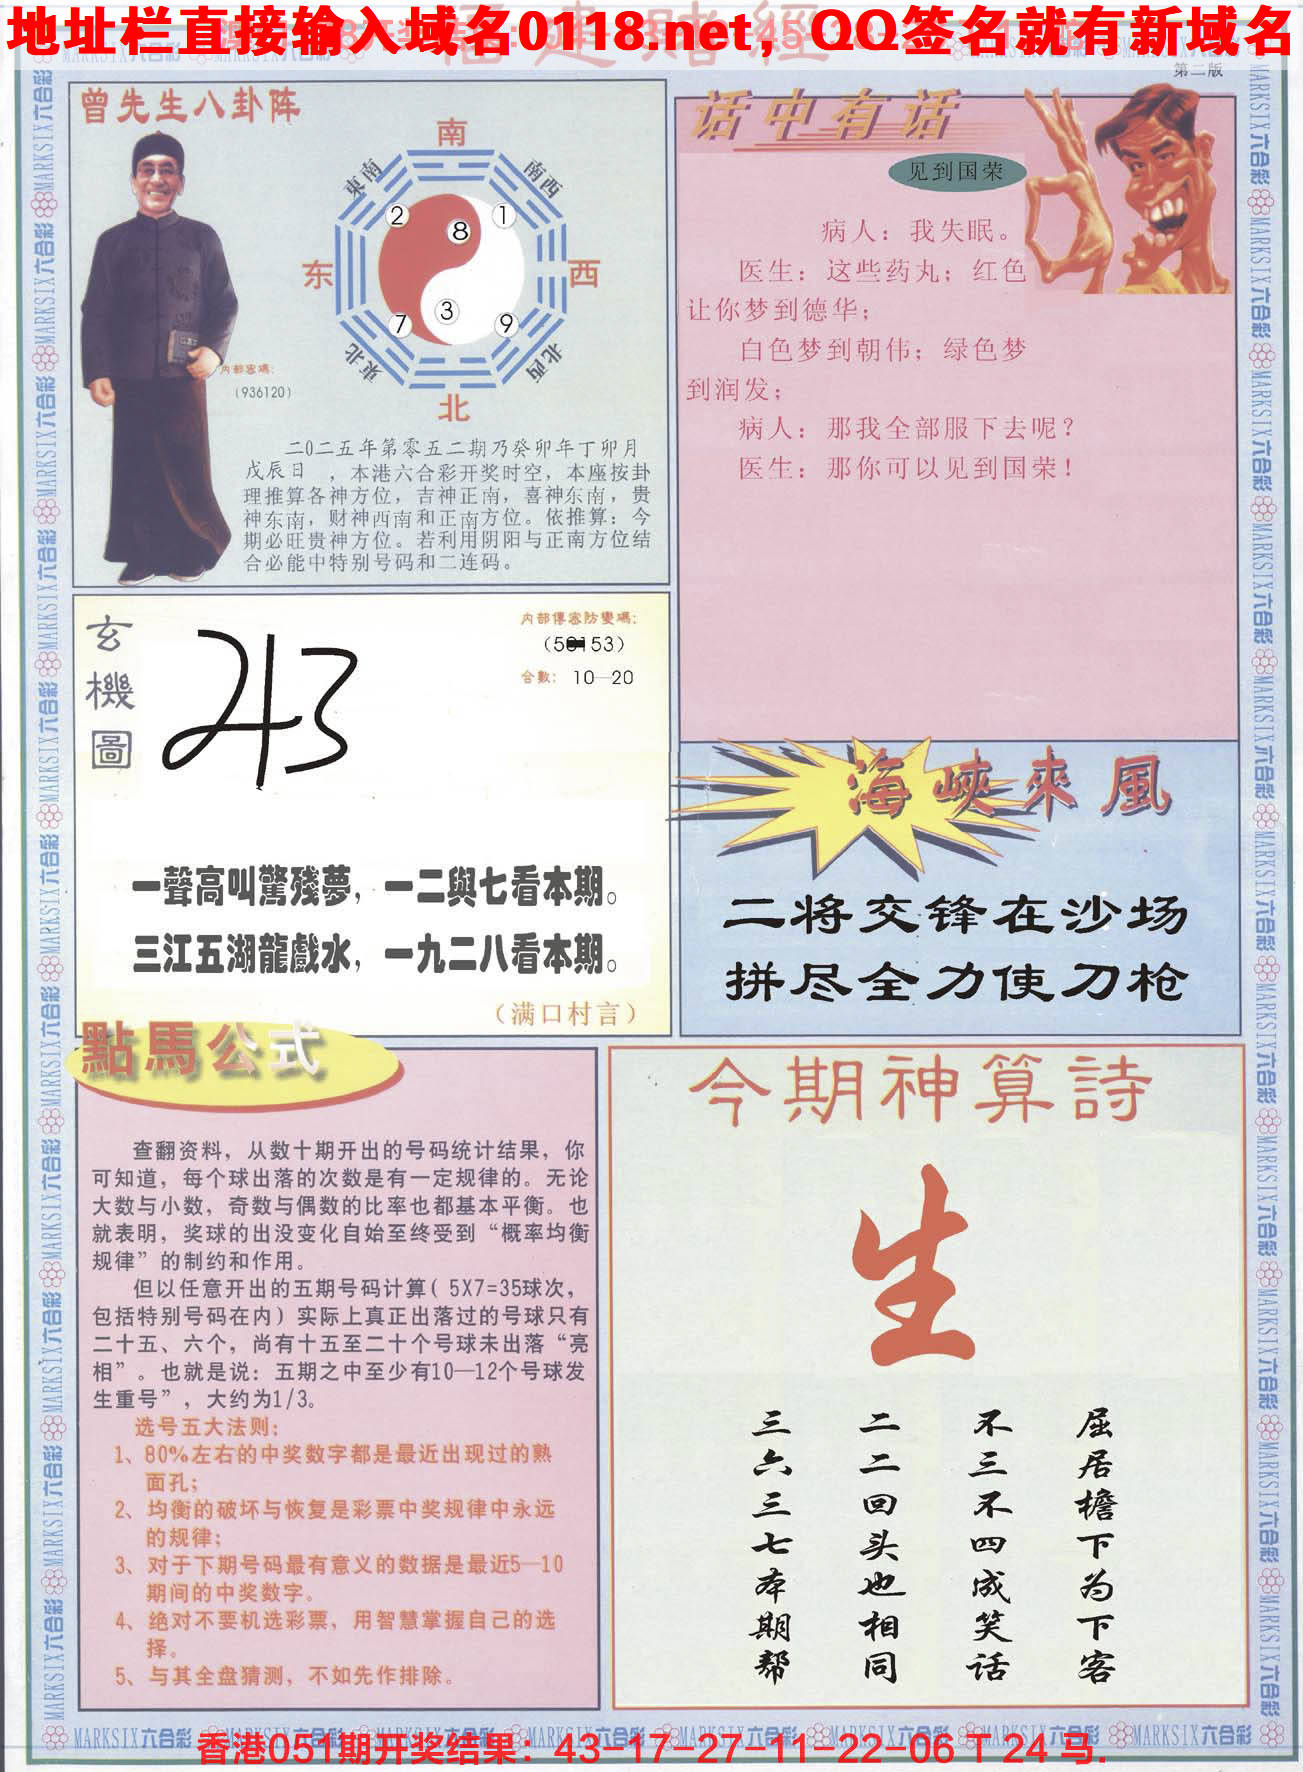 地址栏直接输入域名0118.net，QQ签名就有新域名
第二版
曾先生八卦阵
南
東南
南西
2
1
8
东
西
3
7
9
東北
北西
北
内部密碼：
（936120）
二0二五年第零五二期乃癸卯年丁卯月
戊辰日　，本港六合彩开奖时空，本座按卦
理推算各神方位，吉神正南，喜神东南，贵
神东南，财神西南和正南方位。依推算：今
期必旺贵神方位。若利用阴阳与正南方位结
合必能中特别号码和二连码。
话中有话
见到国荣
病人：我失眠。
医生：这些药丸；红色
让你梦到德华；
白色梦到朝伟；绿色梦
到润发；
病人：那我全部服下去呢？
医生：那你可以见到国荣！
玄機圖
内部傳密防變碼：
合數： 10—20
一聲高叫驚殘夢，一二與七看本期。
三江五湖龍戲水，一九二八看本期。
（满口村言）
海峽來風
二将交锋在沙场
拼尽全力使刀枪
點馬公式
查翻资料，从数十期开出的号码统计结果，你
可知道，每个球出落的次数是有一定规律的。无论
大数与小数，奇数与偶数的比率也都基本平衡。也
就表明，奖球的出没变化自始至终受到“概率均衡
规律”的制约和作用。
但以任意开出的五期号码计算（5X7=35球次，
包括特别号码在内）实际上真正出落过的号球只有
二十五、六个，尚有十五至二十个号球未出落“亮
相”。也就是说：五期之中至少有10—12个号球发
生重号”，大约为1/3。
选号五大法则：
1、80%左右的中奖数字都是最近出现过的熟
面孔；
2、均衡的破坏与恢复是彩票中奖规律中永远
的规律；
3、对于下期号码最有意义的数据是最近5—10
期间的中奖数字。
4、绝对不要机选彩票，用智慧掌握自己的选
择。
5、与其全盘猜测，不如先作排除。
今期神算詩
生
屈居檐下为下客
不三不四成笑话
二二回头也相同
三六三七本期帮
MARKSIX六合彩
香港051期开奖结果：43-17-27-11-22-06 T 24 马.